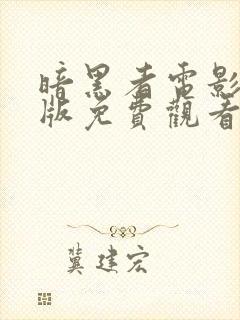 暗黑者電影
版免費觀看
冀建宏